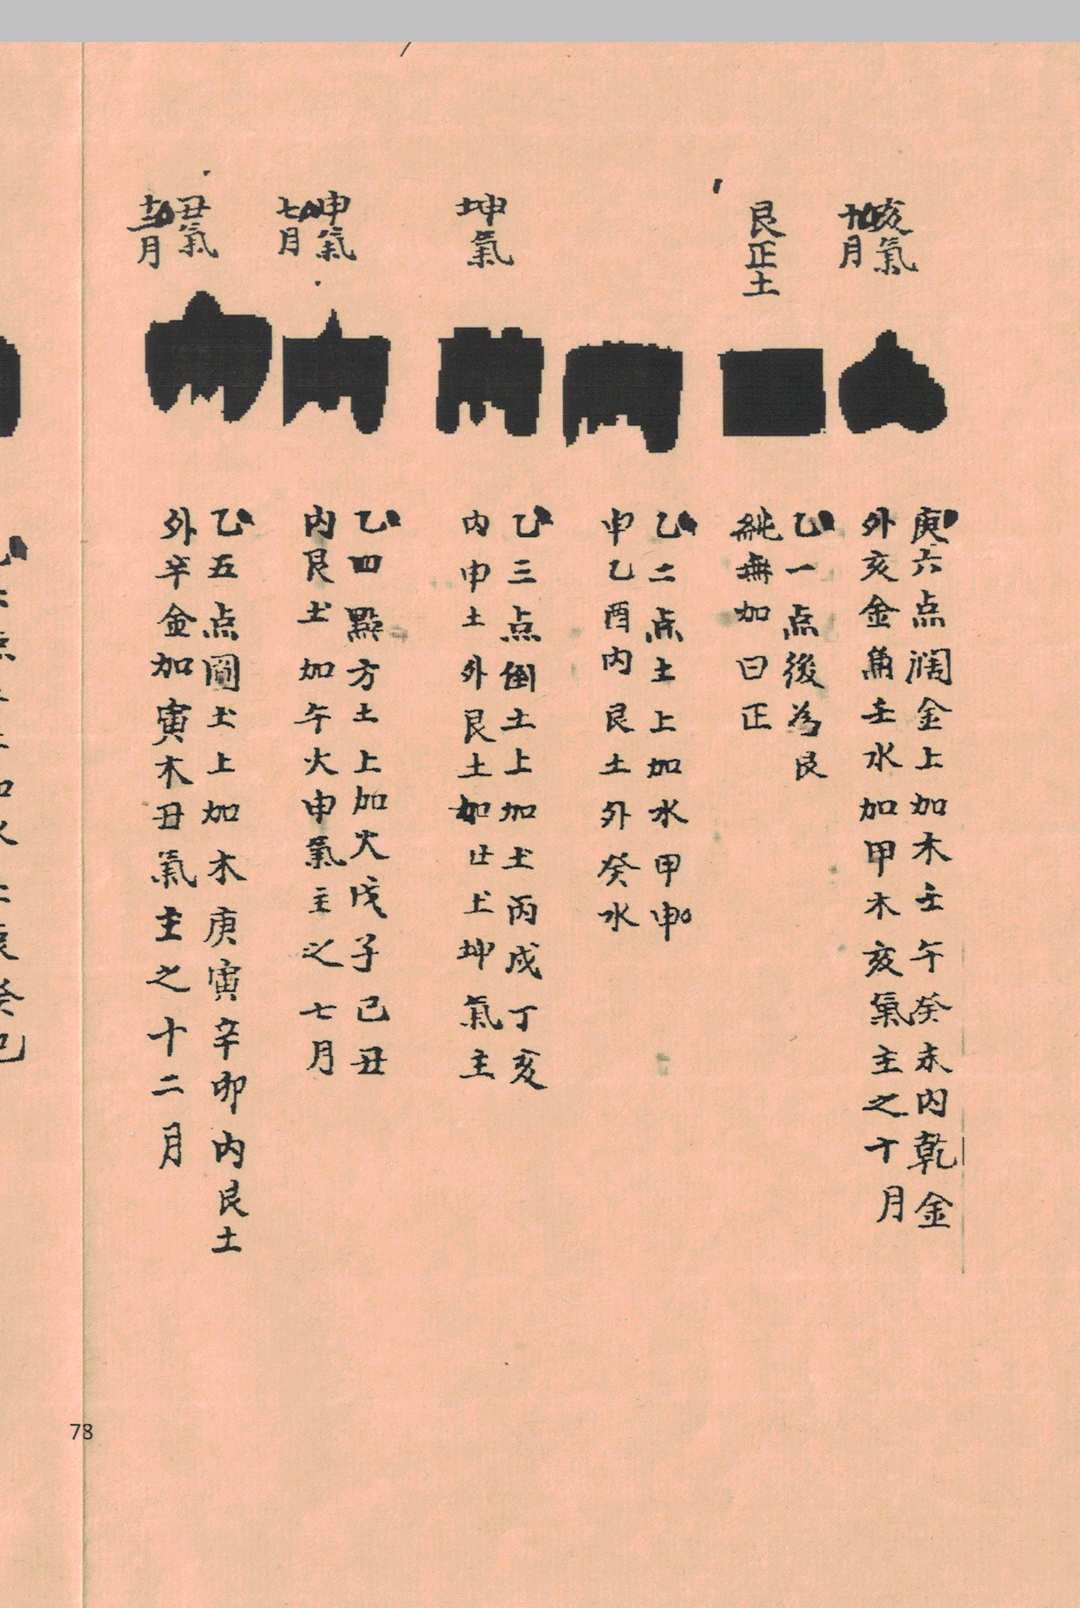 亥氣
十月
艮正土
坤氣
申氣
七月
丑氣
十二月
庚六点濶金上加木壬午癸未内乾金
外亥金角壬水加甲木亥氣主之十月
乙一点後為艮
純無加曰正
乙二点土上加水甲申
乙酉内艮土外癸水
乙三点倒土上加土丙戌丁亥
内申土外艮土加土坤氣主
乙四點方土上加火戊子己丑
内艮土加午火申氣主之七月
乙五点圓土上加木庚寅辛卯内艮土
外辛金加寅木丑氣主之十二月
78